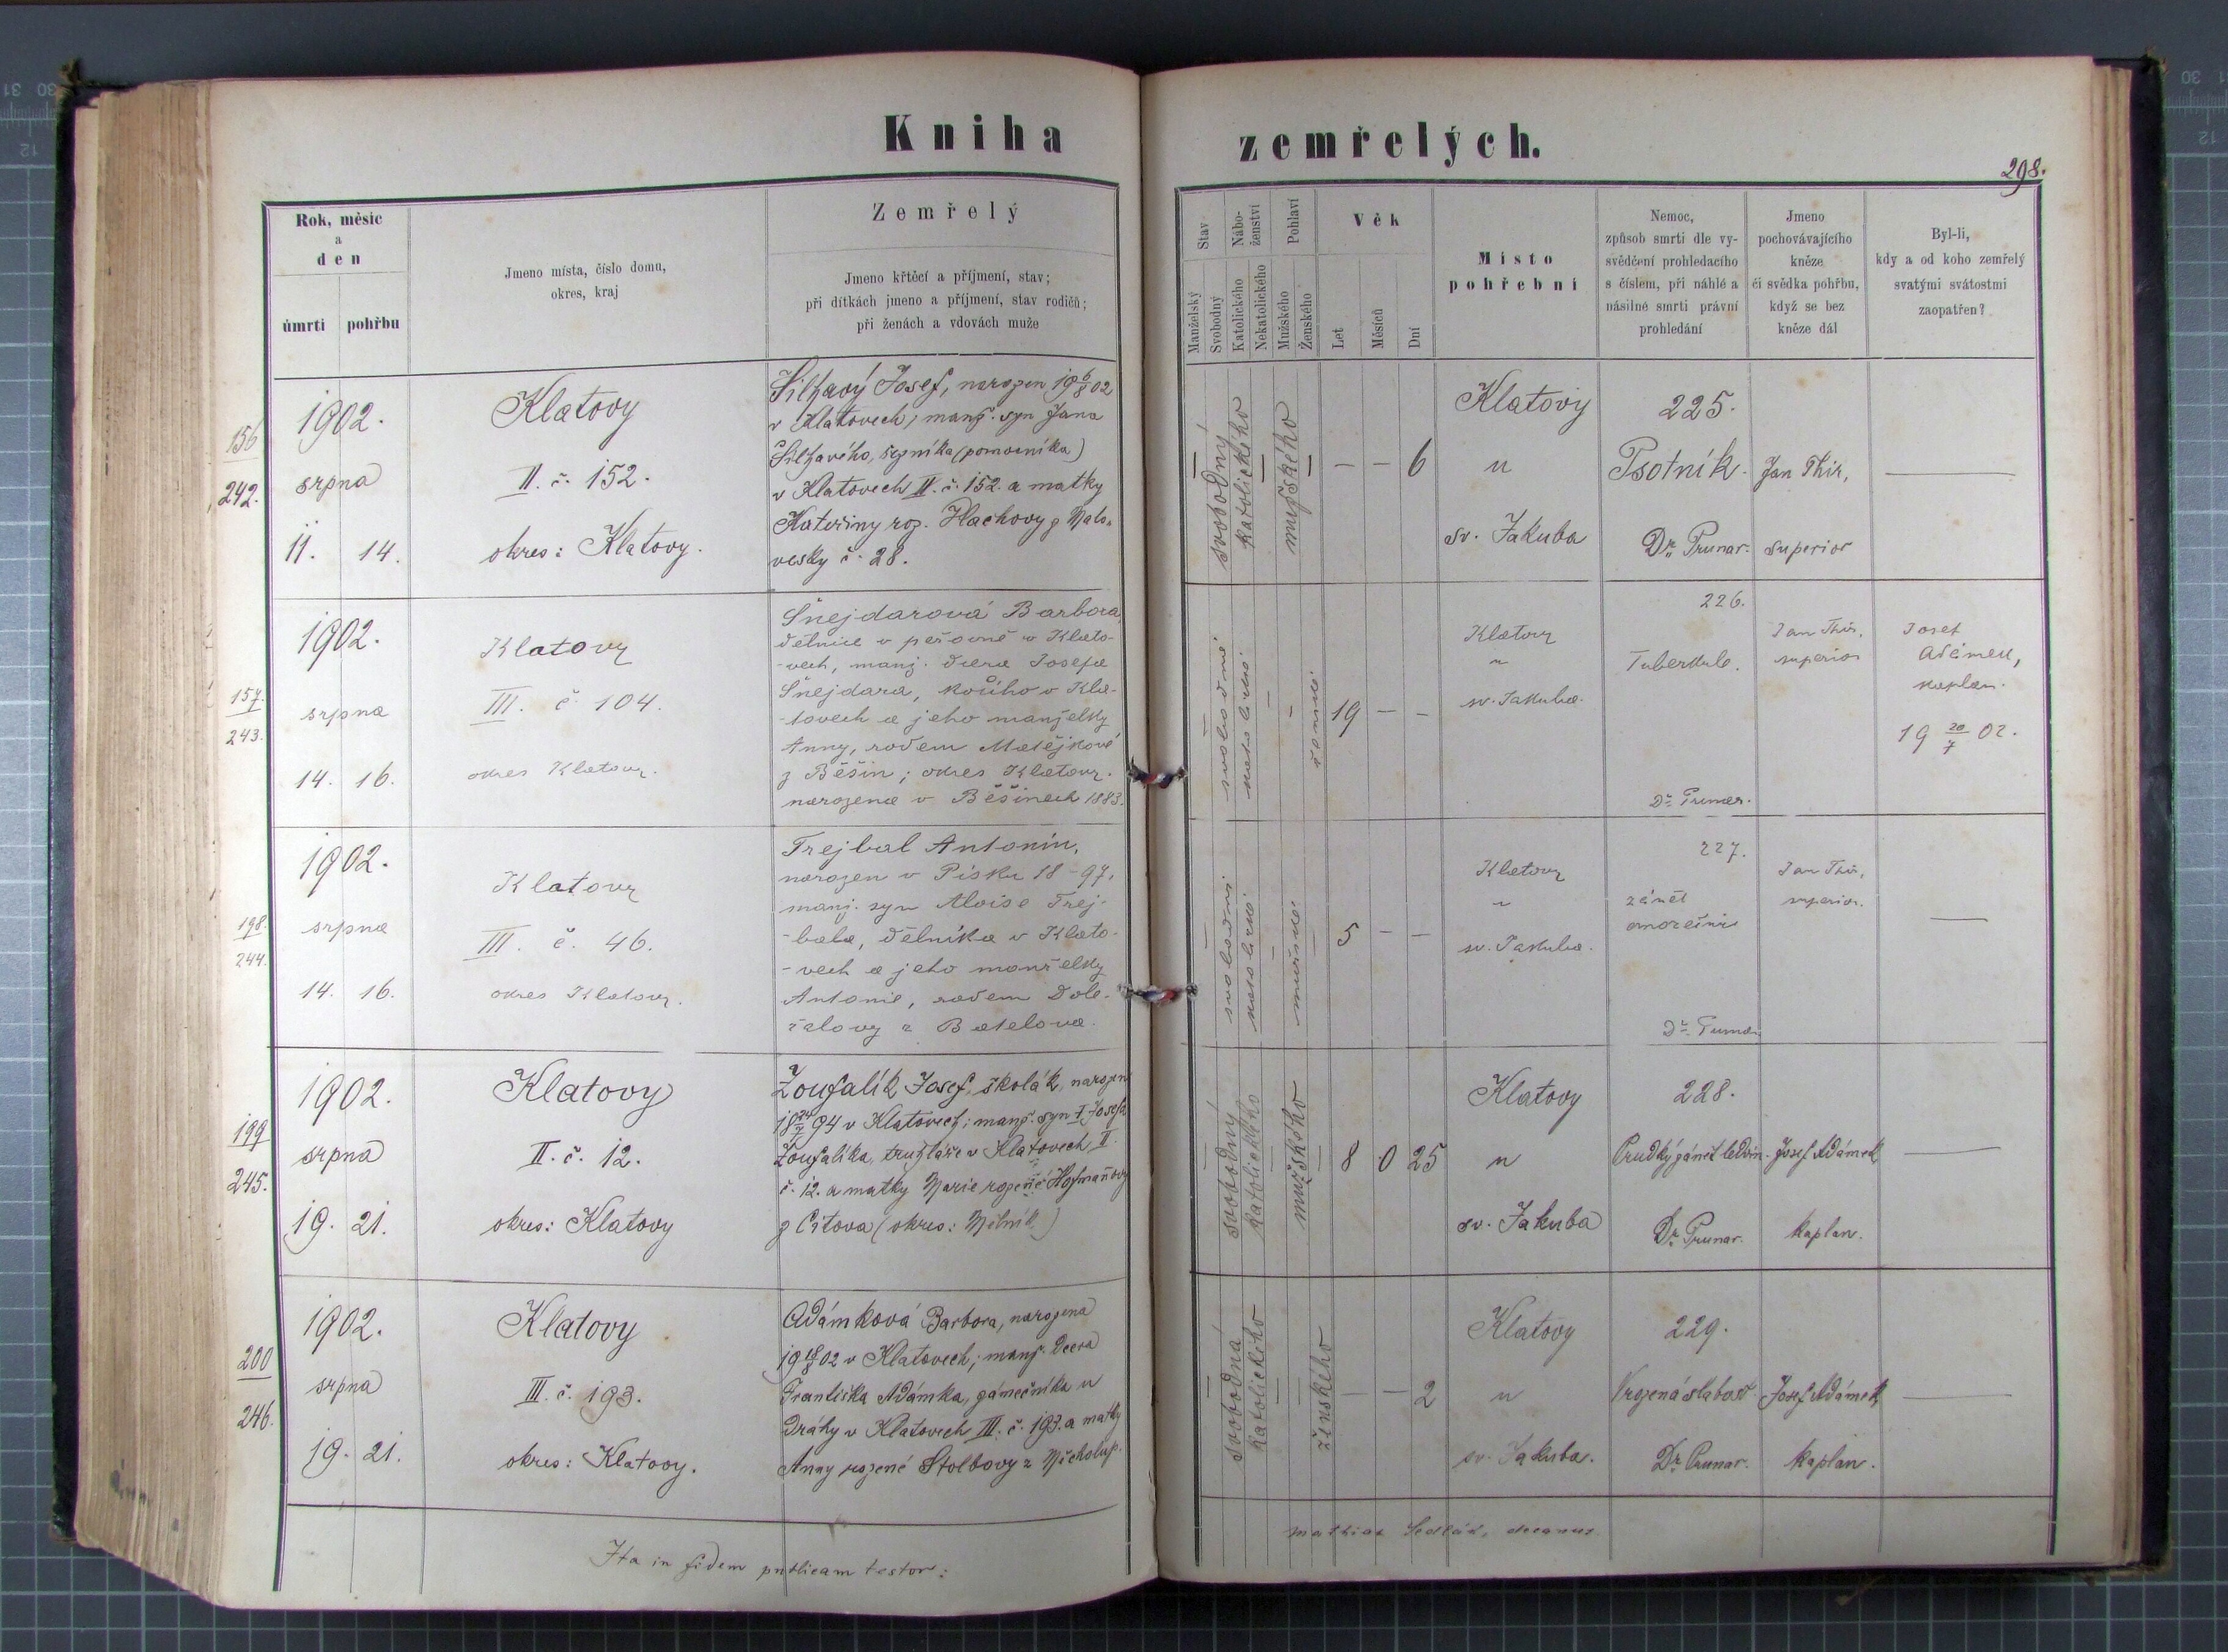 Kniha zemřelých.
298.
Rok, měsíc
a
den
úmrtí pohřbu
Jmeno místa, číslo domu,
okres, kraj
Zemřelý
Jmeno křtěcí a příjmení, stav;
při dítkách jmeno a příjmení, stav rodičů;
při ženách a vdovách muže
Stav
Manželský
Svobodný
Nábo-
ženství
Katolického
Nekatolického
Pohlaví
Mužského
Ženského
Věk
Let
Měsíců
Dní
Místo
pohřební
Nemoc,
způsob smrti dle vy-
svědčení prohledacího
s číslem, při náhlé a
násilné smrti právní
prohledání
Jmeno
pochovávajícího
kněze
či svědka pohřbu,
když se bez
kněze dál
Byl-li,
kdy a od koho zemřelý
svatými svátostmi
zaopatřen?
156
242.
1902.
srpna
11. 14.
Klatovy
II. č. 152.
okres: Klatovy.
Šilhavý Josef, narozen 19 6/8 02
v Klatovech; manž. syn Jana
Šilhavého, (pomocníka)
v Klatovech II. č. 152. a matky
Kateřiny roz. Hlachovy z Malo-
vesky č. 28.
svobodný
katolického
mužského
— — 6
Klatovy
u
sv. Jakuba
225.
Psotník.
Dr. Prunar.
Jan Thir,
superior
—
157.
243.
1902.
srpna
14. 16.
Klatovy
III. č. 104.
okres Klatovy.
Šnejdarová Barbora
dělnice v peřovně v Klato-
-vech, manž. dcera Josefa
Šnejdara, v Kla-
-tovech a jeho manželky
Anny, rodem Matějkové
z Běšin; okres Klatovy.
narozena v Běšinech 1883.
svobodné
katolické
ženské
19 — —
Klatovy
u
sv. Jakuba.
226.
Tuberkule.
Dr. Prunar.
Jan Thir,
superior
Josef
Adámek,
kaplan.
19 20/7 02.
198.
244.
1902.
srpna
14. 16.
Klatovy
III. č. 46.
okres Klatovy.
Trejbal Antonín,
narozen v Písku 18-97,
manž. syn Aloise Trej-
-bala, dělníka v Klato-
-vech a jeho manželky
Antonie, rodem Dole-
žalovy z Batelova.
svobodní
katolické
mužské
5 — —
Klatovy
u
sv. Jakuba.
227.
zánět
Dr. Prunar
Jan Thir,
superior.
—
199
245.
1902.
srpna
19. 21.
Klatovy
II. č. 12.
okres: Klatovy
Zoufalík Josef, školák, narozen
18 24/7 94 v Klatovech; manž. syn † Josefa
Zoufalíka, truhláře v Klatovech II.
č. 12. a matky Marie rozené Hofmanovy
z Cítova (okres: Mělník)
svobodný
katolického
mužského
8 0 25
Klatovy
u
sv. Jakuba
228.
Prudký zánět ledvin.
Dr. Prunar.
Josef Adámek
kaplan.
—
200
246.
1902.
srpna
19. 21.
Klatovy
III. č. 193.
okres: Klatovy.
Adámková Barbora, narozena
19 18/8 02 v Klatovech; manž. dcera
Františka Adámka, zámečníka u
dráhy v Klatovech III. č. 193. a matky
Anny rozené Stolbovy z Měcholup.
svobodná
katolického
ženského
— — 2
Klatovy
u
sv. Jakuba.
229.
Vrozená slabost
Dr. Prunar.
Josef Adámek
kaplan.
—
Ita in fidem publicam testor:
Mathias Sedlák, decanus.